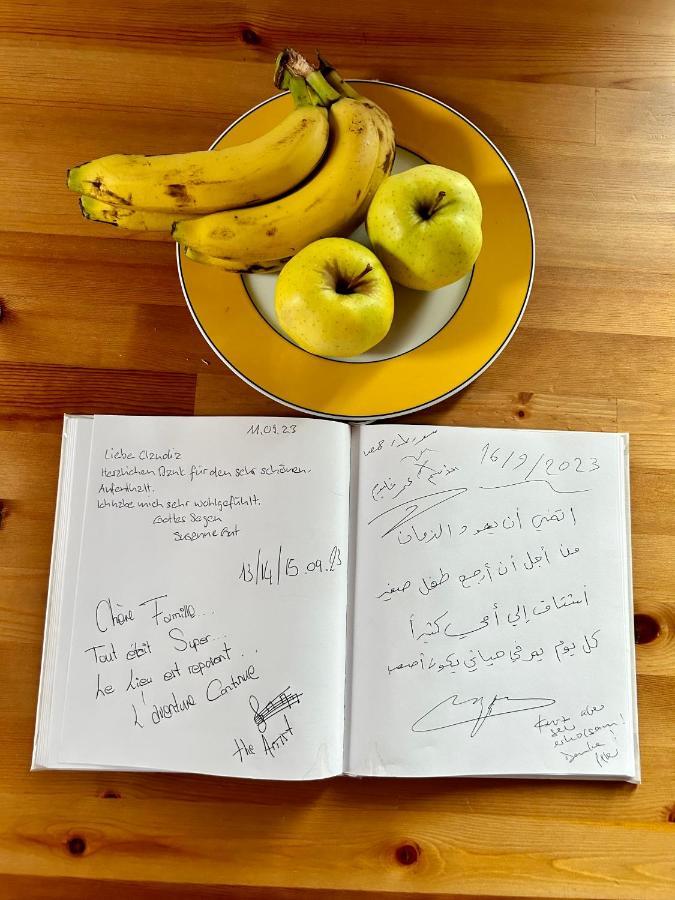 11.09.23
Liebe Claudia
Herzlichen Dank für den sehr schönen
Aufenthalt.
Ich habe mich sehr wohlgefühlt.
Gottes Segen
Susanne
13/14/15.09.23
Chère Famille...
Tout était Super...
Le Lieu est reposant...
L'aventure Continue
the Artist
16/9/2023
اتمنى أن يعود الزمان
من أجل أن أرجع طفل صغير
أشتاق إلى أمي كثيراً
كل يوم يمر في حياتي يكون أصعب
Kurz aber
sehr
erholsam!
Danke!